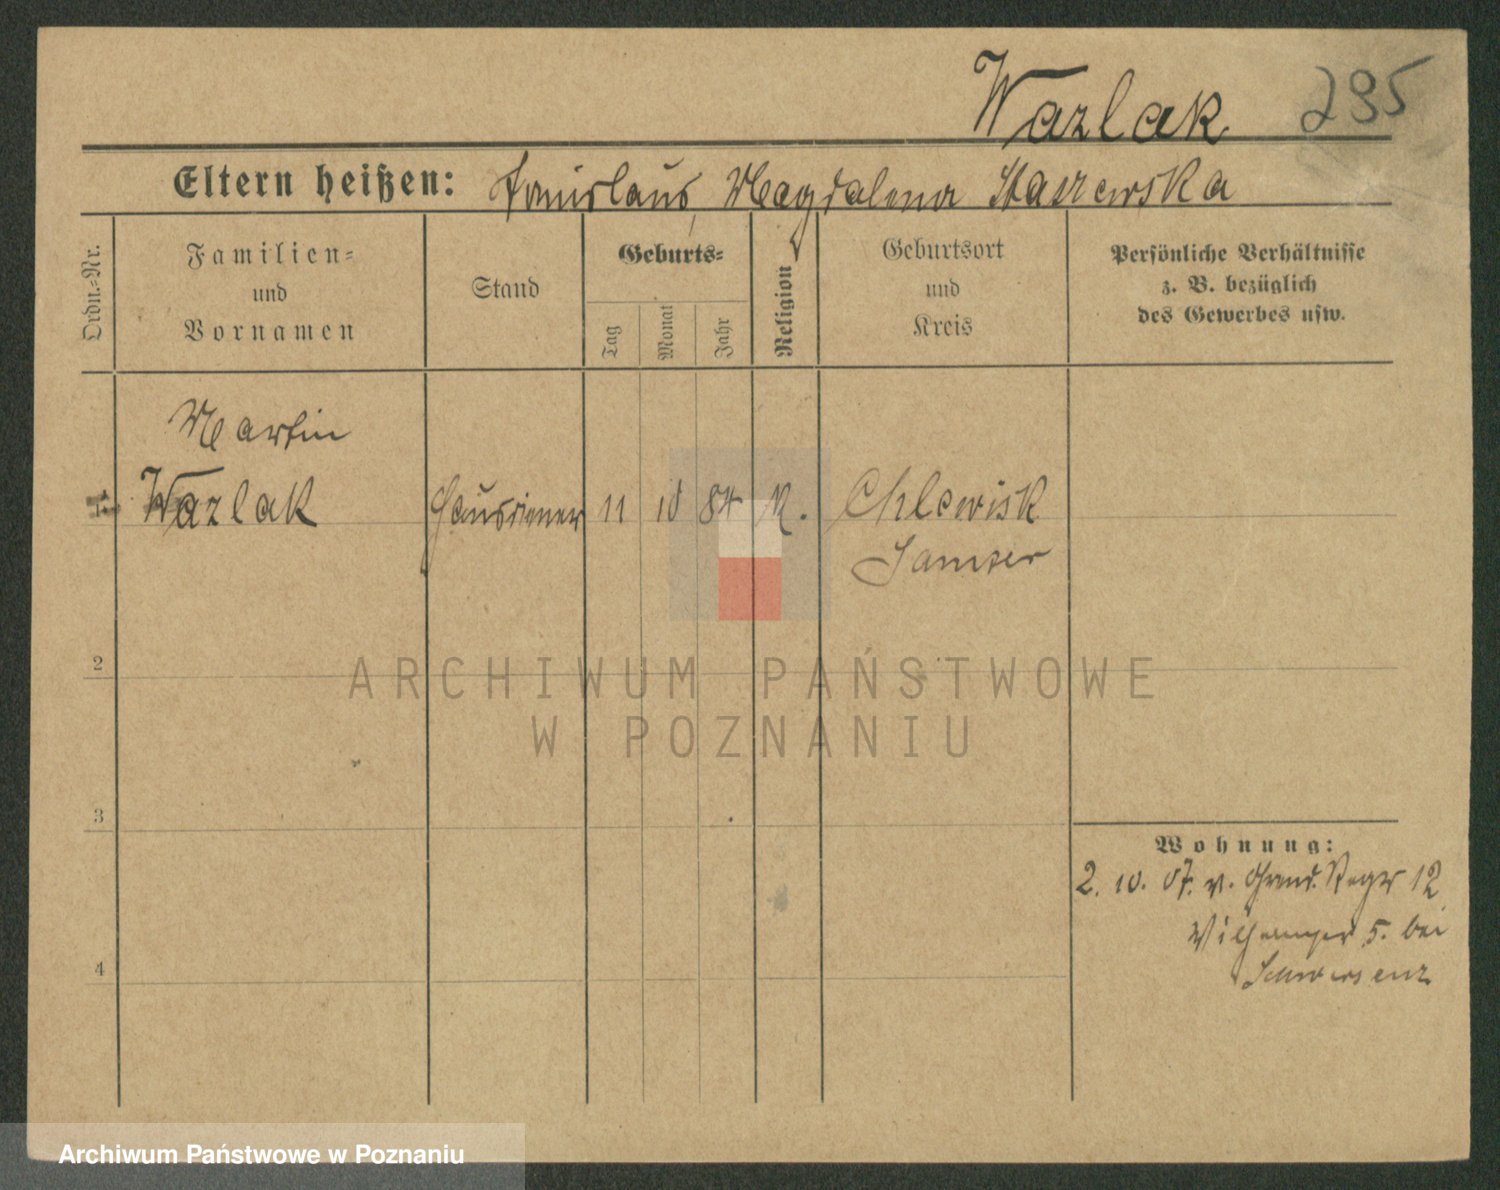 Wazlak 295
Eltern heißen: Stanislaus, Magdalena Staszewska
Ordn.-Nr.
Familien-
und
Vornamen
Stand
Geburts-
Tag
Monat
Jahr
Religion
Geburtsort
und
Kreis
Persönliche Verhältnisse
z. B. bezüglich
des Gewerbes usw.
Martin
1. Wazlak Hausdiener 11 10 84 K. Chlewisk
Samter
2
3
4
Wohnung:
2. 10. 07. v. 12
5. bei
Schwersenz
ARCHIWUM PAŃSTWOWE
W POZNANIU
Archiwum Państwowe w Poznaniu